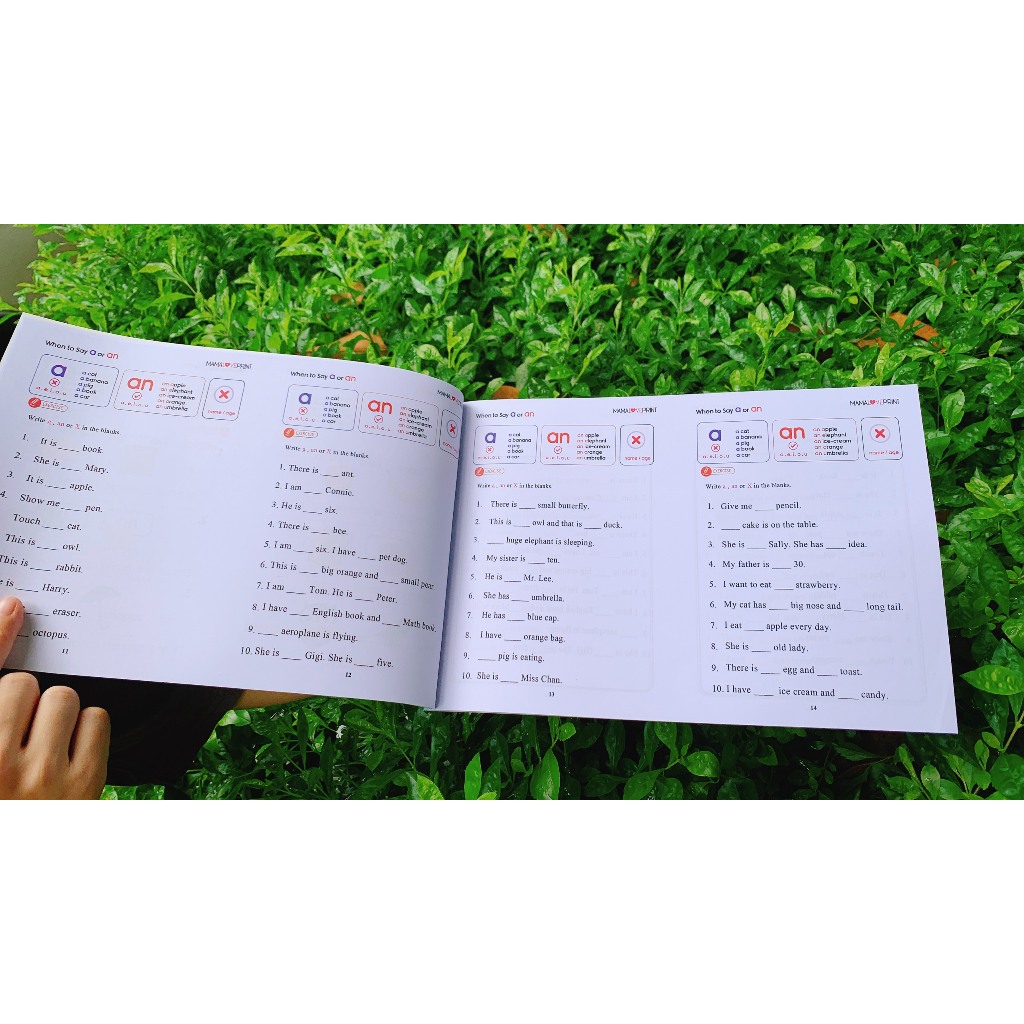 When to Say a or an
MAMALOVEPRINT
a
a, e, i, o, u
a cat
a banana
a pig
a book
a car
an
a, e, i, o, u
an apple
an elephant
an ice-cream
an orange
an umbrella
name / age
EXERCISE
Write a , an or X in the blanks.
1. It is ____ book.
2. She is ____ Mary.
3. It is ____ apple.
4. Show me ____ pen.
Touch ____ cat.
This is ____ owl.
This is ____ rabbit.
e is ____ Harry.
____ eraser.
____ octopus.
11
When to Say a or an
MAMAL
a
a, e, i, o, u
a cat
a banana
a pig
a book
a car
an
a, e, i, o, u
an apple
an elephant
an ice-cream
an orange
an umbrella
EXERCISE
Write a , an or X in the blanks.
1. There is ____ ant.
2. I am ____ Connie.
3. He is ____ six.
4. There is ____ bee.
5. I am ____ six. I have ____ pet dog.
6. This is ____ big orange and ____ small pear.
7. I am ____ Tom. He is ____ Peter.
8. I have ____ English book and ____ Math book.
9. ____ aeroplane is flying.
10. She is ____ Gigi. She is ____ five.
12
When to Say a or an
MAMALOVEPRINT
a
a, e, i, o, u
a cat
a banana
a pig
a book
a car
an
a, e, i, o, u
an apple
an elephant
an ice-cream
an orange
an umbrella
name / age
EXERCISE
Write a , an or X in the blanks.
1. There is ____ small butterfly.
2. This is ____ owl and that is ____ duck.
3. ____ huge elephant is sleeping.
4. My sister is ____ ten.
5. He is ____ Mr. Lee.
6. She has ____ umbrella.
7. He has ____ blue cap.
8. I have ____ orange bag.
9. ____ pig is eating.
10. She is ____ Miss Chan.
13
When to Say a or an
MAMALOVEPRINT
a
a, e, i, o, u
a cat
a banana
a pig
a book
a car
an
a, e, i, o, u
an apple
an elephant
an ice-cream
an orange
an umbrella
name / age
EXERCISE
Write a , an or X in the blanks.
1. Give me ____ pencil.
2. ____ cake is on the table.
3. She is ____ Sally. She has ____ idea.
4. My father is ____ 30.
5. I want to eat ____ strawberry.
6. My cat has ____ big nose and ____ long tail.
7. I eat ____ apple every day.
8. She is ____ old lady.
9. There is ____ egg and ____ toast.
10. I have ____ ice cream and ____ candy.
14